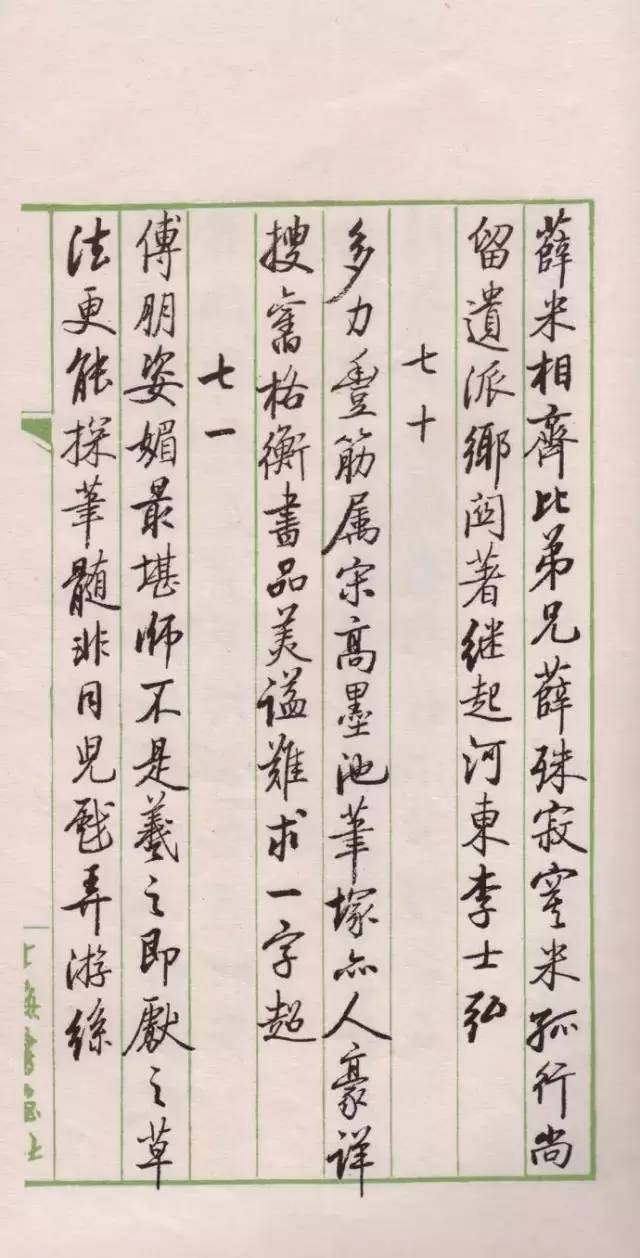 薛米相齊比弟兄薛殊寂寞米孤行尚
留遺派鄉閭著继起河東李士弘
七十
多力豊筋属宗高墨池筆塚亦人豪详
搜舊格衡書品美谥難求一字超
七一
傅朋姿媚最堪师不是羲之即獻之草
法更能探筆髓非同児戲弄游絲